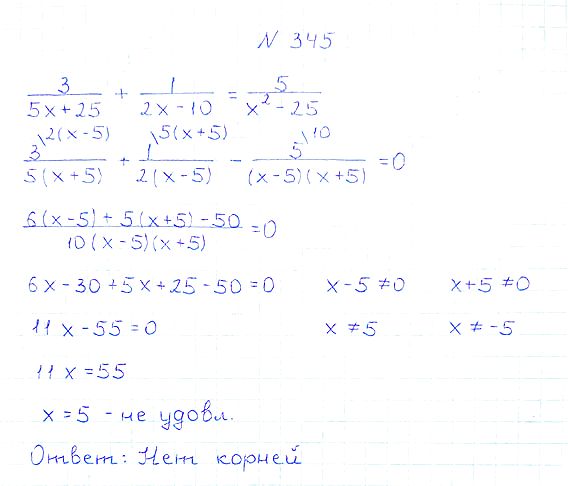 N 345
3/(5x+25) + 1/(2x-10) = 5/(x²-25)
3\2(x-5)/(5(x+5)) + 1\5(x+5)/(2(x-5)) - 5\10/((x-5)(x+5)) =0
(6(x-5)+5(x+5)-50)/(10(x-5)(x+5)) =0
6x-30+5x+25-50=0 x-5≠0 x+5≠0
11x-55=0 x≠5 x≠-5
11x=55
x=5 - не удовл.
Ответ: Нет корней